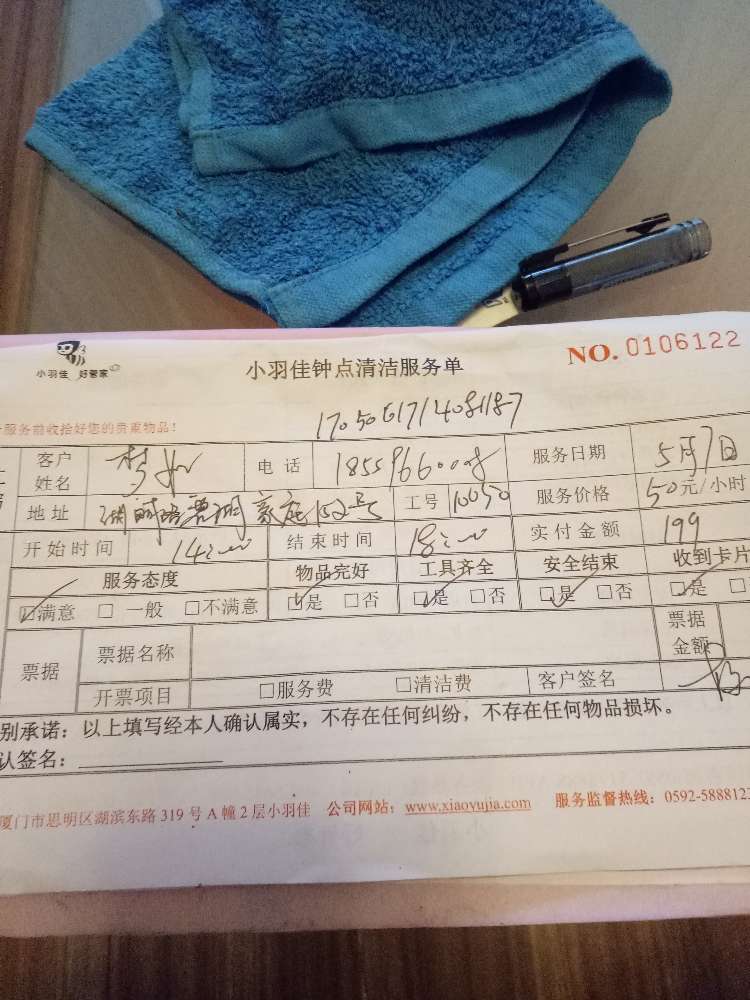 小羽佳 好管家
小羽佳钟点清洁服务单
NO. 0106122
服务前收拾好您的贵重物品!
1705061714081187
客户姓名 电话 服务日期 5月7日
地址 工号 10050 服务价格 50元/小时
开始时间 14:00 结束时间 18:00 实付金额 199
服务态度 物品完好 工具齐全 安全结束 收到卡片
☑满意 □一般 □不满意 ☑是 □否 ☑是 □否 ☑是 □否 ☑是 □
票据 票据名称 票据金额
开票项目 □服务费 □清洁费 客户签名
别承诺:以上填写经本人确认属实,不存在任何纠纷,不存在任何物品损坏。
认签名:
厦门市思明区湖滨东路 319 号 A 幢 2 层小羽佳 公司网站:www.xiaoyujia.com 服务监督热线:0592-5888122